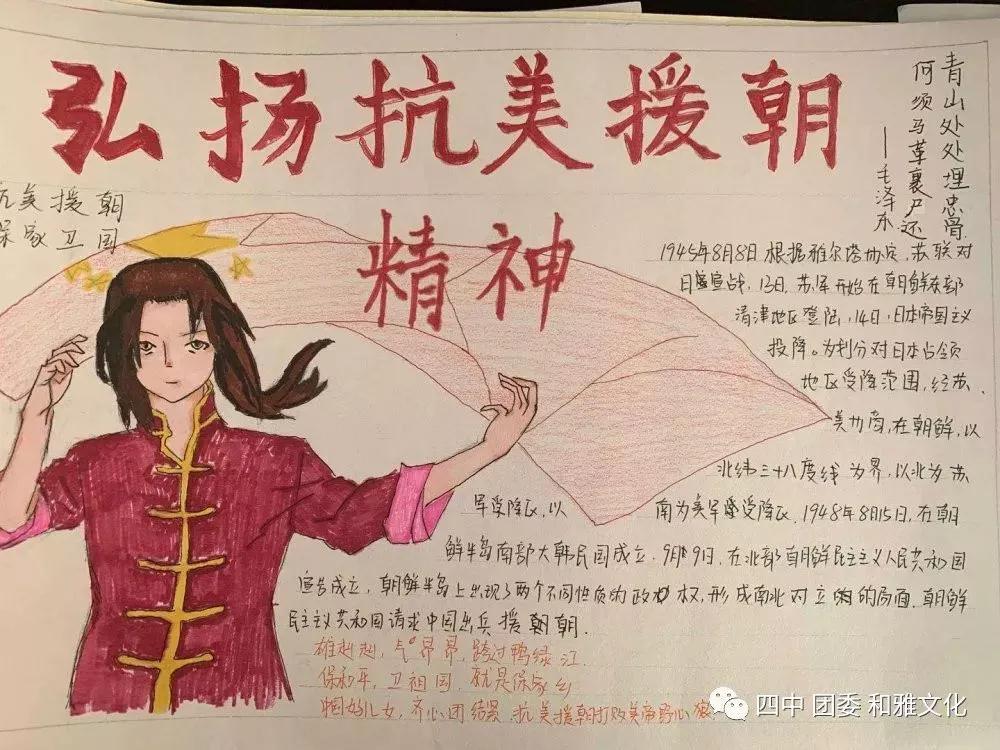 弘扬抗美援朝
精神
青山处处埋忠骨
何须马革裹尸还
——毛泽东
抗美援朝
保家卫国
1945年8月8日根据雅尔塔协定,苏联对
日宣战,13日,苏军开始在朝鲜东部
清津地区登陆,14日,日本帝国主义
投降。为划分对日本占领
地区受降范围,经苏、
美协商,在朝鲜,以
北纬三十八度线为界,以北为苏
军受降区,以南为美军受降区,1948年8月15日,在朝
鲜半岛南部大韩民国成立,9月9日,在北部朝鲜民主主义人民共和国
宣告成立,朝鲜半岛上出现了两个不同性质的政权,形成南北对立的局面.朝鲜
民主主义共和国请求中国出兵援朝.
雄赳赳,气昂昂,跨过鸭绿江.
保和平,卫祖国,就是保家乡
中国好儿女,齐心团结紧,抗美援朝打败美帝野心狼
四中 团委 和雅文化